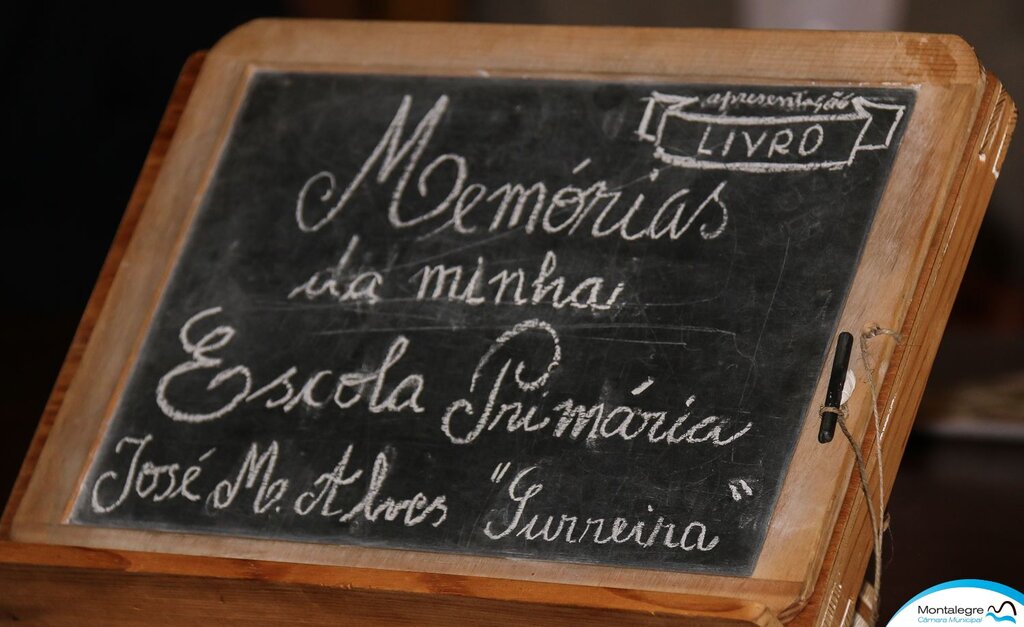 apresentação
LIVRO
Memórias
da minha
Escola Primária
José M. Alves "Gurreira"
Montalegre
Câmara Municipal